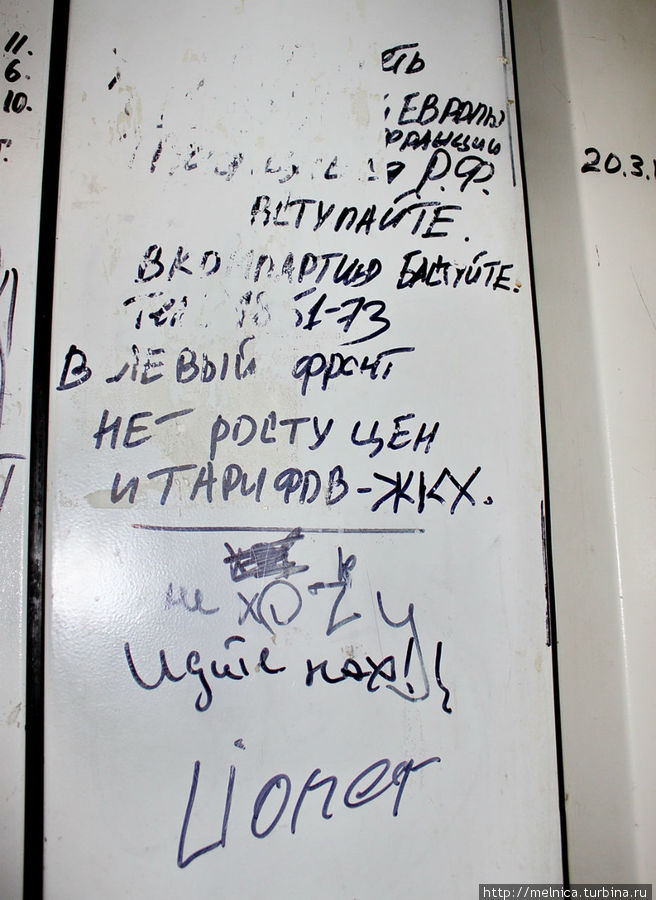 11.
6.
10.
ть
ЕВРОПЫ
ФРАНЦИИ
Р.Ф.
20.3.
ВСТУПАЙТЕ.
В КОМПАРТИЮ БАСТУЙТЕ.
51-73
В ЛЕВЫЙ фронт
НЕТ РОСТУ ЦЕН
И ТАРИФОВ-ЖКХ.
не хочу
Идите нах!!
Lioner
http://melnica.turbina.ru/